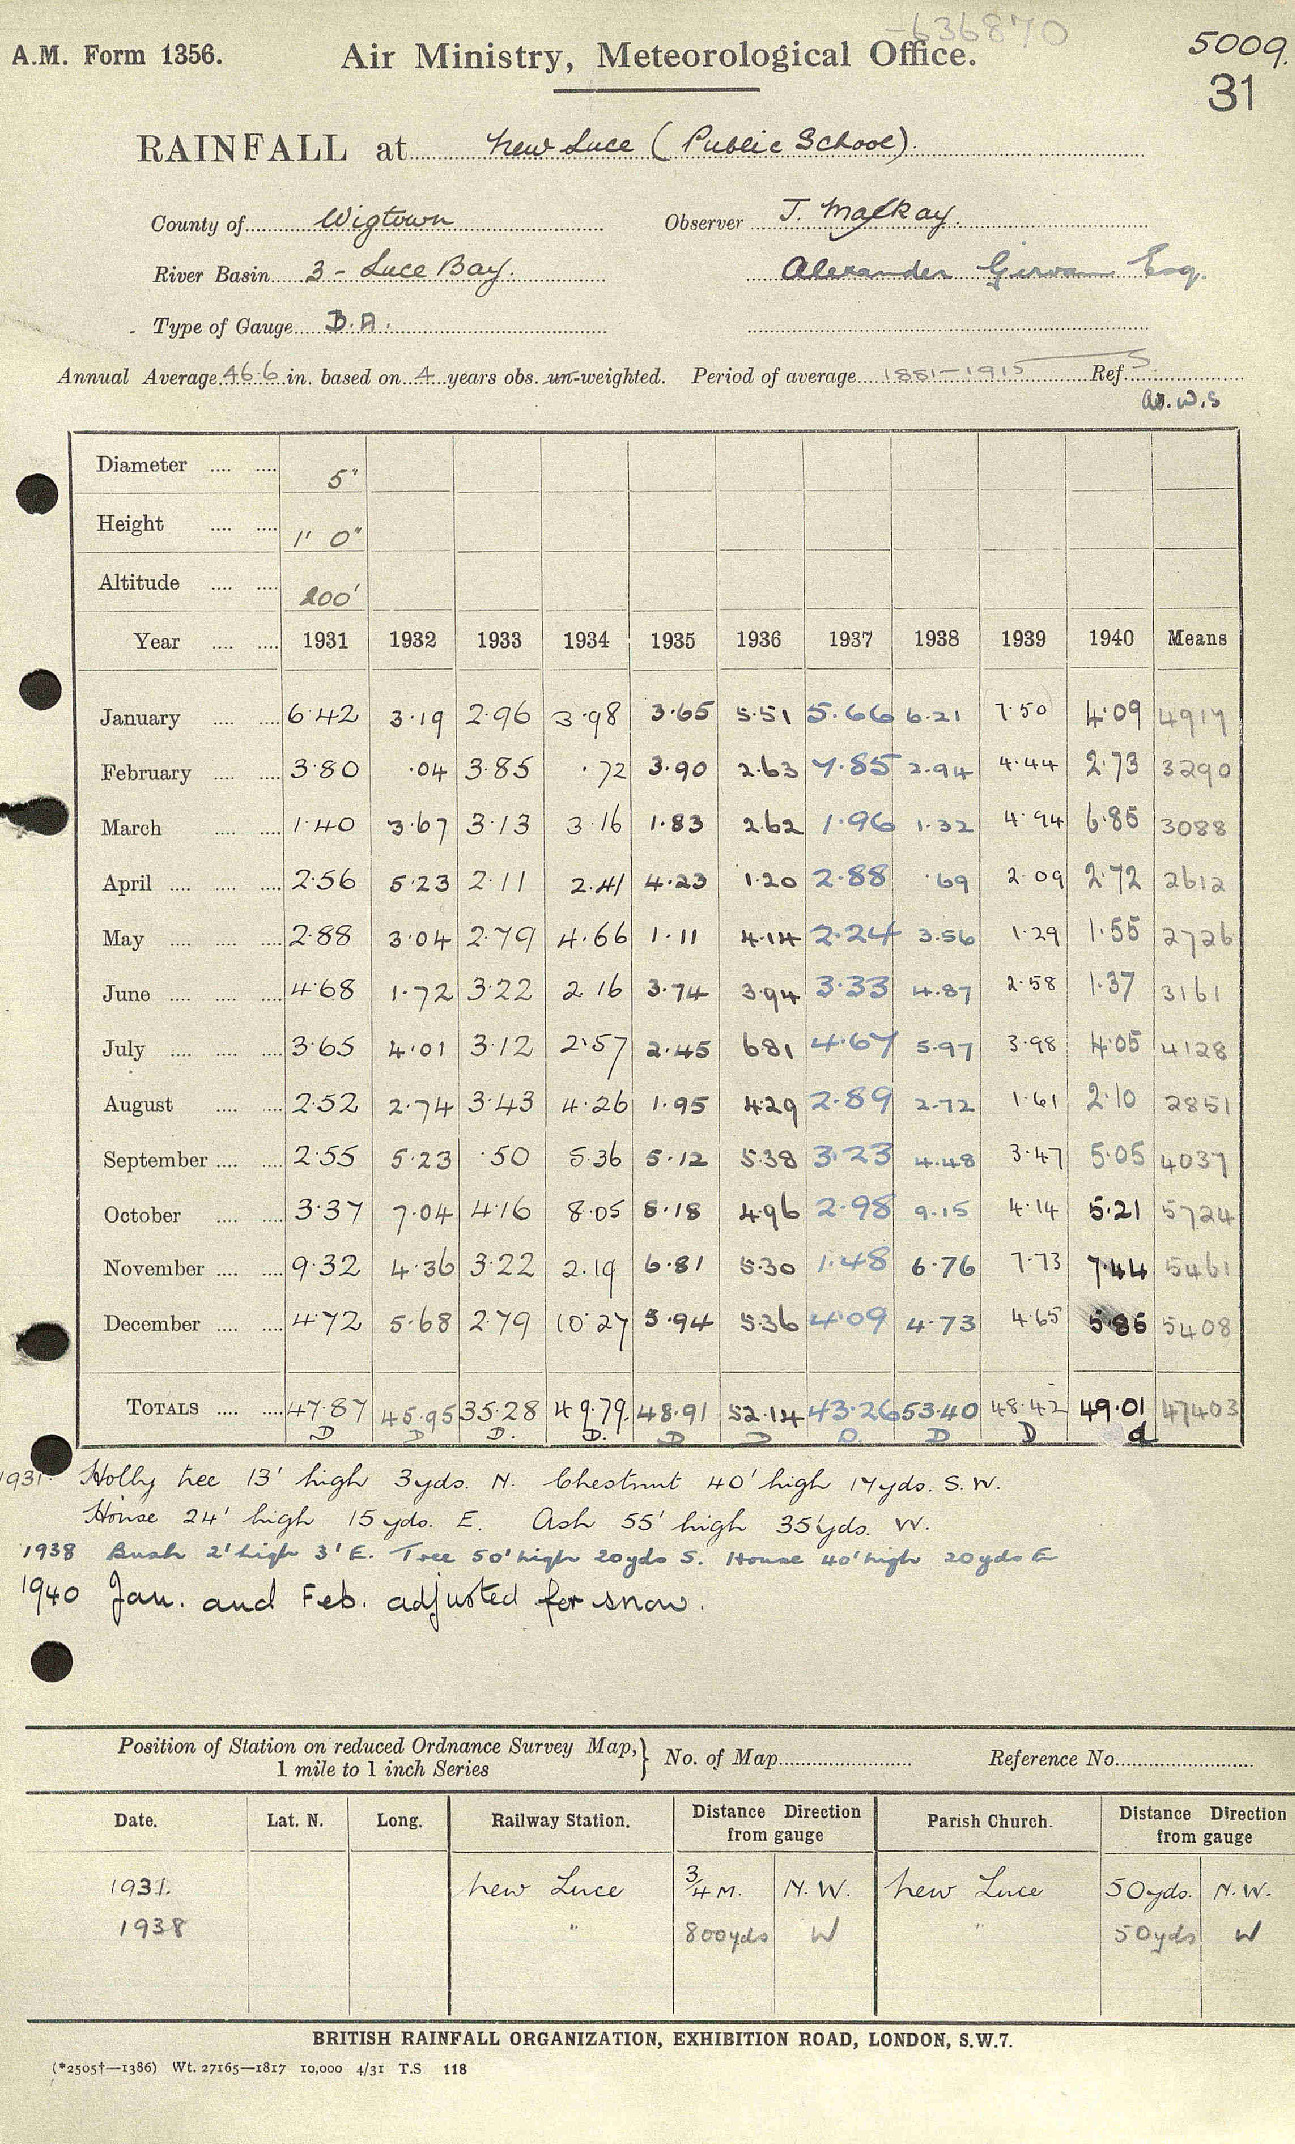 -636870
A.M. Form 1356. Air Ministry, Meteorological Office. 5009.
31
RAINFALL at New Luce (Public School).
County of Wigtown Observer J. MacKay.
River Basin 3 - Luce Bay. Alexander Girvan Esq.
Type of Gauge D.A.
Annual Average 46.6 in. based on 4 years obs. un-weighted. Period of average 1881-1915 Ref. S.
W.S
Diameter .... .... 5"
Height .... .... 1' 0"
Altitude .... .... 200'
Year .... .... 1931 1932 1933 1934 1935 1936 1937 1938 1939 1940 Means
January .... .... 6.42 3.19 2.96 3.98 3.65 5.51 5.66 6.21 7.50 4.09 4917
February .... .... 3.80 .04 3.85 .72 3.90 2.63 7.85 2.94 4.44 2.73 3290
March .... .... 1.40 3.67 3.13 3.16 1.83 2.62 1.96 1.32 4.94 6.85 3088
April .... .... .... 2.56 5.23 2.11 2.41 4.23 1.20 2.88 .69 2.09 2.72 2612
May .... .... .... 2.88 3.04 2.79 4.66 1.11 4.14 2.24 3.56 1.29 1.55 2726
June .... .... .... 4.68 1.72 3.22 2.16 3.74 3.94 3.33 4.87 2.58 1.37 3161
July .... .... .... 3.65 4.01 3.12 2.57 2.45 6.81 4.67 5.97 3.98 4.05 4128
August .... .... 2.52 2.74 3.43 4.26 1.95 4.29 2.89 2.72 1.61 2.10 2851
September .... .... 2.55 5.23 .50 5.36 5.12 5.38 3.23 4.48 3.47 5.05 4037
October .... .... 3.37 7.04 4.16 8.05 8.18 4.96 2.98 9.15 4.14 5.21 5724
November .... .... 9.32 4.36 3.22 2.19 6.81 5.30 1.48 6.76 7.73 7.44 5461
December .... .... 4.72 5.68 2.79 10.27 5.94 5.36 4.09 4.73 4.65 5.85 5408
TOTALS .... .... 47.87 45.95 35.28 49.79 48.91 52.14 43.26 53.40 48.42 49.01 47403
D D D. D. D D D. D D d
1931. Holly tree 13' high 3yds. N. Chestnut 40' high 17yds. S.W.
House 24' high 15 yds. E. Ash 55' high 35 yds. W.
1938 Bush 2' high 3' E. Tree 50' high 20yds S. House 40' high 20yds E
1940 Jan. and Feb. adjusted for snow.
Position of Station on reduced Ordnance Survey Map, } No. of Map Reference No.
1 mile to 1 inch Series
Date. Lat. N. Long. Railway Station. Distance Direction Parish Church. Distance Direction
from gauge from gauge
1931. New Luce 3/4 M. N.W. New Luce 50yds. N.W.
1938 " 800yds W " 50yds W
BRITISH RAINFALL ORGANIZATION, EXHIBITION ROAD, LONDON, S.W.7.
(*2505†—1386) Wt. 27165—1817 10,000 4/31 T.S 118